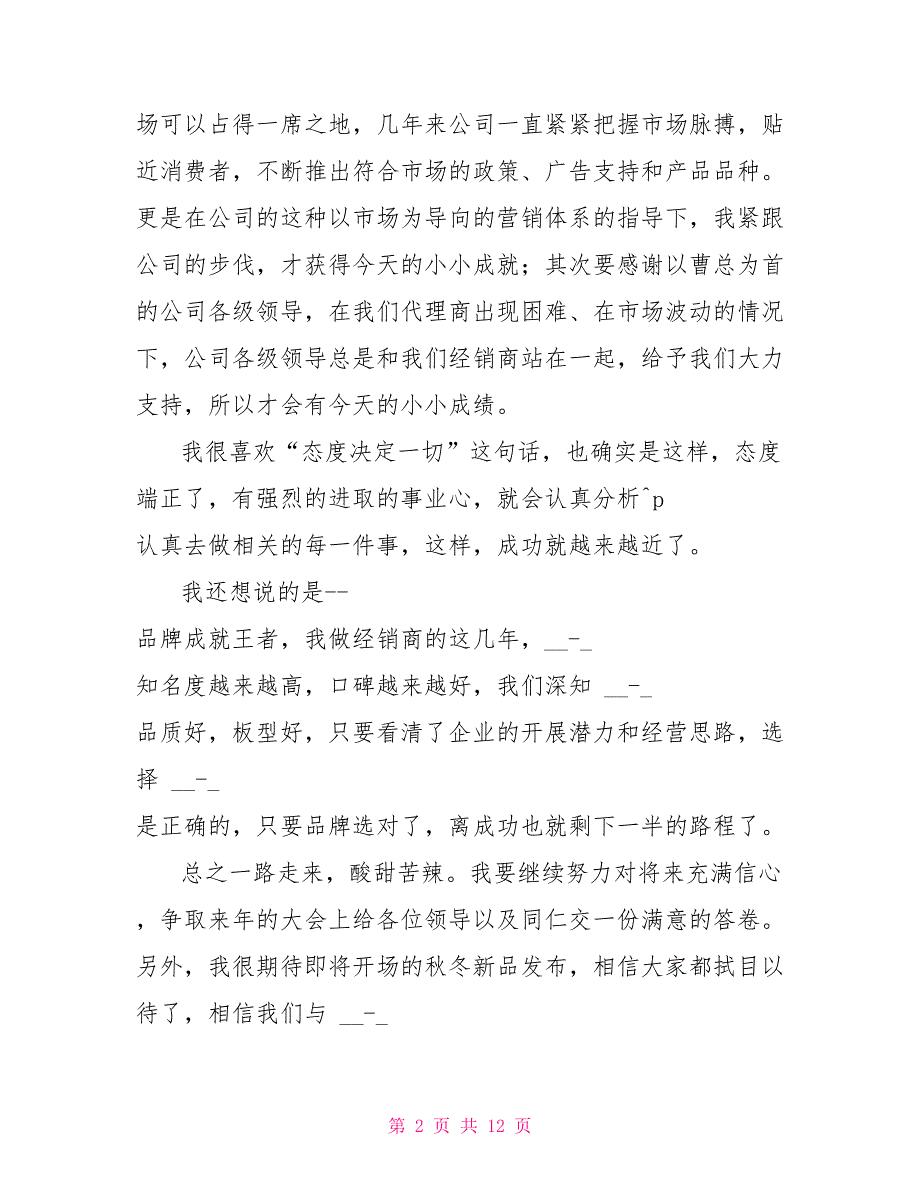 场可以占得一席之地，几年来公司一直紧紧把握市场脉搏，贴
近消费者，不断推出符合市场的政策、广告支持和产品品种。
更是在公司的这种以市场为导向的营销体系的指导下，我紧跟
公司的步伐，才获得今天的小小成就；其次要感谢以曹总为首
的公司各级领导，在我们代理商出现困难、在市场波动的情况
下，公司各级领导总是和我们经销商站在一起，给予我们大力
支持，所以才会有今天的小小成绩。
我很喜欢“态度决定一切”这句话，也确实是这样，态度
端正了，有强烈的进取的事业心，就会认真分析^p
认真去做相关的每一件事，这样，成功就越来越近了。
我还想说的是--
品牌成就王者，我做经销商的这几年，__-_
知名度越来越高，口碑越来越好，我们深知 __-_
品质好，板型好，只要看清了企业的开展潜力和经营思路，选
择 __-_
是正确的，只要品牌选对了，离成功也就剩下一半的路程了。
总之一路走来，酸甜苦辣。我要继续努力对将来充满信心
，争取来年的大会上给各位领导以及同仁交一份满意的答卷。
另外，我很期待即将开场的秋冬新品发布，相信大家都拭目以
待了，相信我们与 __-_
第 2 页 共 12 页